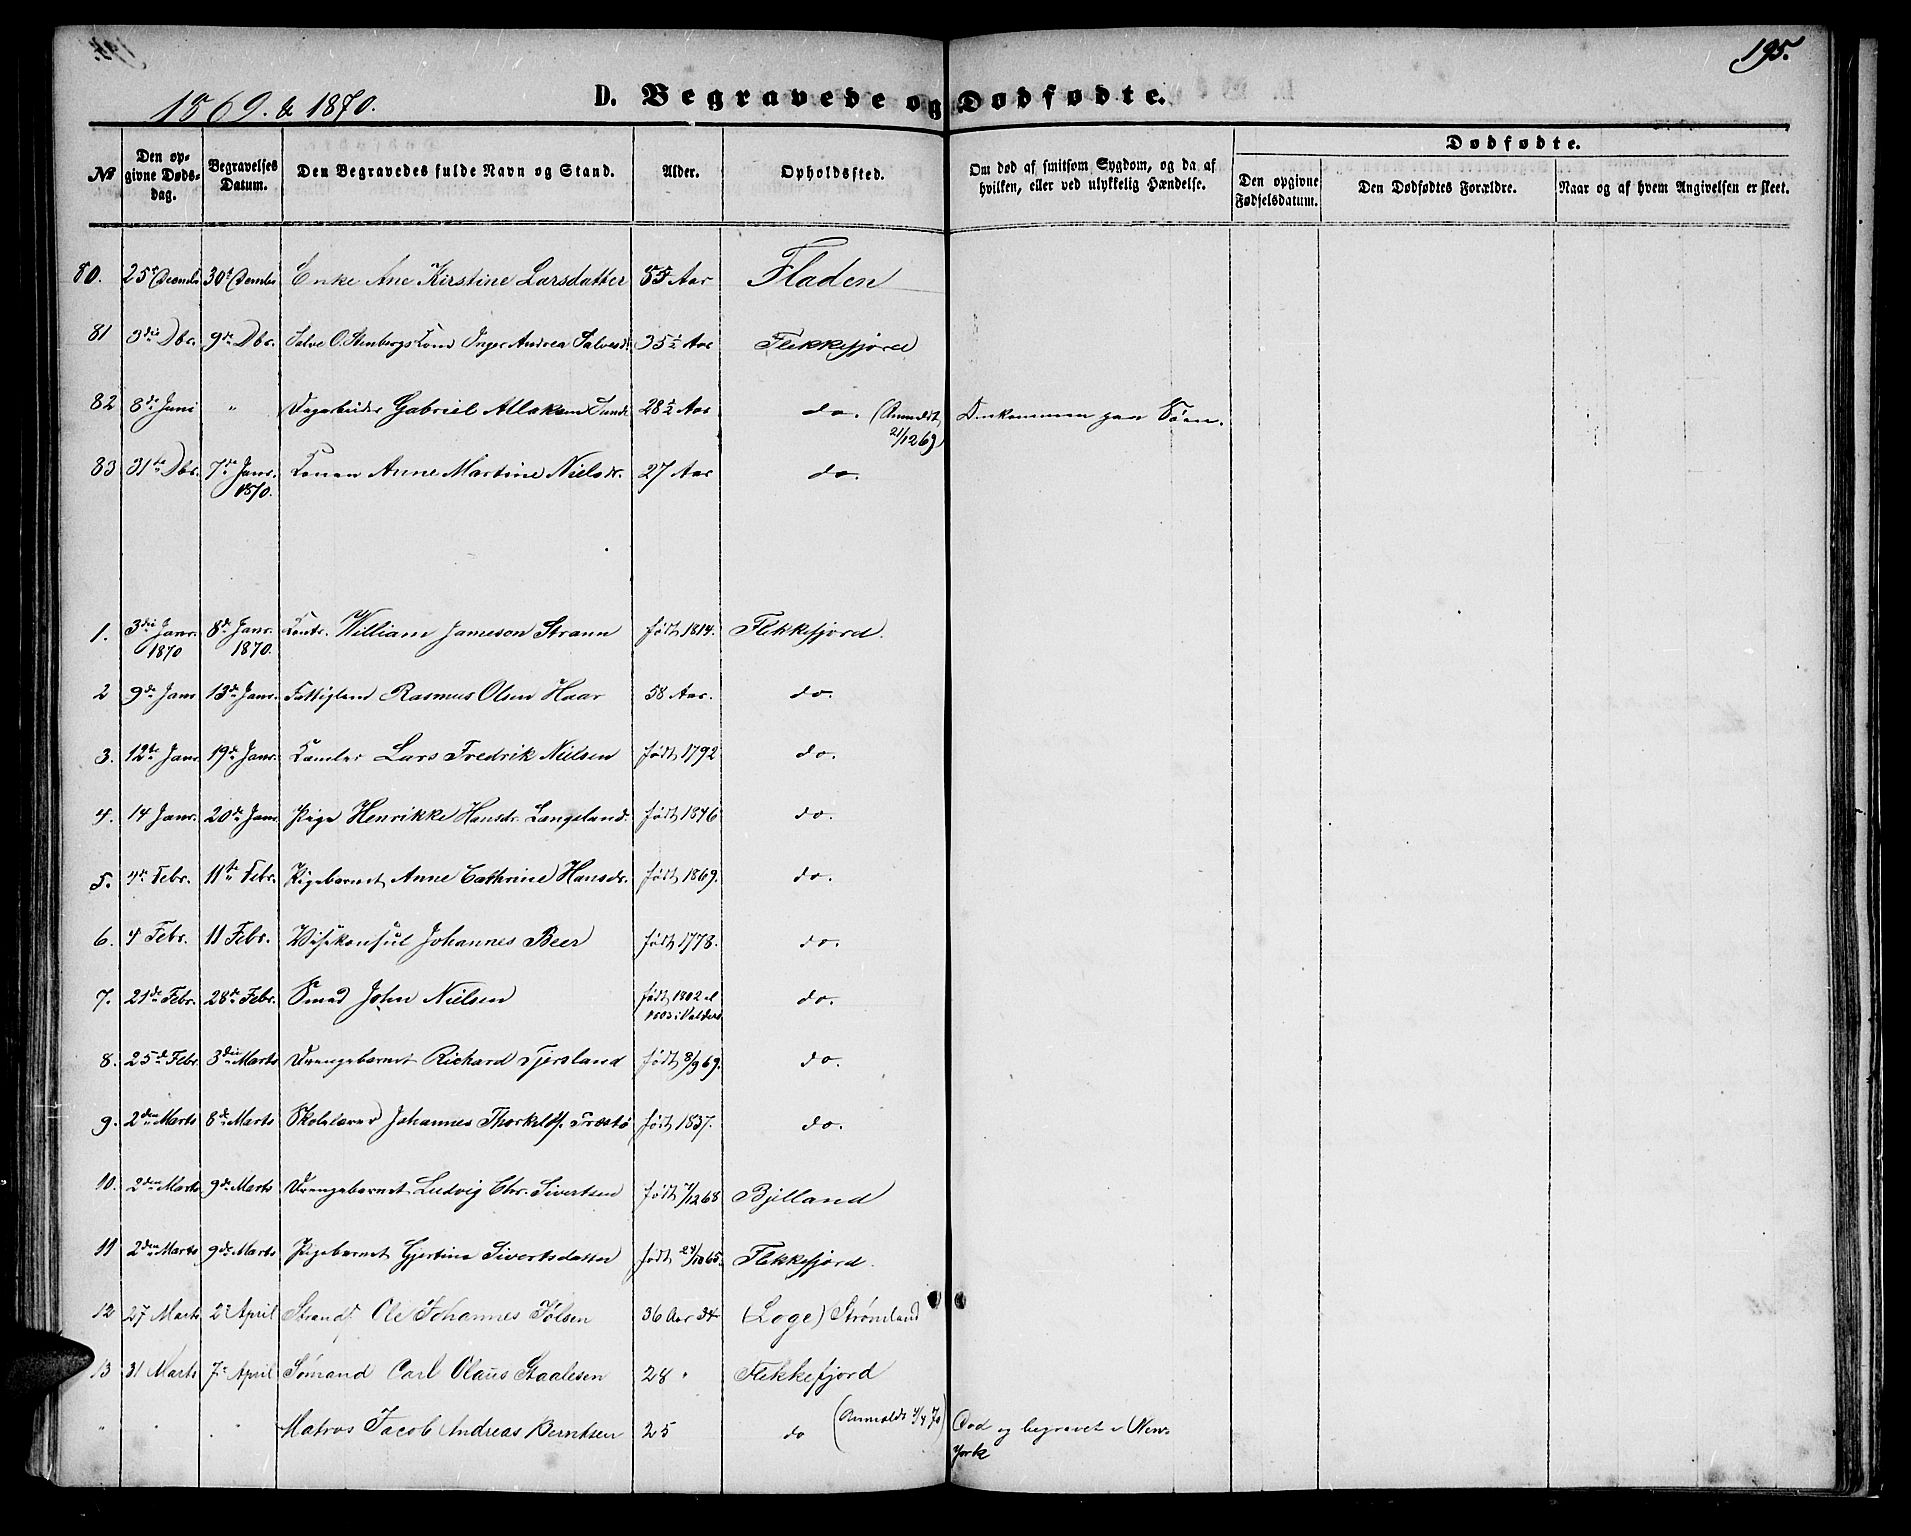 195.
1869. & 1870.
D. Begravede og Dødfødte.
Dødfødte.
No
Den opgivne Dødsdag.
Begravelses Datum.
Den Begravedes fulde Navn og Stand.
Alder.
Opholdssted.
Om død af smitsom Sygdom, og da af hvilken, eller ved ulykkelig Hændelse.
Den opgivne Fødselsdatum.
Den Dødfødtes Forældre.
Naar og af hvem Angivelsen er skeet.
80. 25de Decembr 30te Decembr Enke Ane Kirstine Larsdatter Aar Fladen
81 3die Dbr. 9de Dbr. Salve O. Stenbergs Kone Inger Andrea Salvesd. 35½ Aar Flekkefjord
82 8de Juni " Dagarbeider Gabriel 28½ Aar do. (Anmeldt 21/12 69) Omkommen paa Søen.
83 31te Dbr. 7de Janr. 1870. Konen Anne Martine Nielsdr. 27 Aar do.
1. 3die Janr. 1870 8de Janr. 1870. William Jameson Strann født 1814. Flekkefjord.
2 9de Janr 13de Janr. Fattiglem Rasmus Olsen Haar 58 Aar. do.
3. 12te Janr 19de Janr. Lars Fredrik Nielsen født 1792 do.
4. 14 Janr. 20de Janr Pige Henrikke Hansdr. Langeland. født 1846 do.
5. 4de Febr. 11te Febr. Pigebarnet Anne Cathrine Hansdr. født 1869. do.
6. 4 Febr. 11 Febr. Visekonsul Johannes Beer født 1778. do.
7. 21de Febr. 28de Febr. Smed John Nielsen født 1802 el 1803 i Valders. do.
8. 25de Febr. 3die Marts Drengebarnet Richard Tjersland født 8/9 69. do.
9. 2den Marts 8de Marts Skolelærer Johannes Thorkelds. født 1837. do.
10. 2den Marts 9de Marts Drengebarnet Ludvig Chr. Sivertsen født 7/12 68 Bjelland
11 2den Marts 9de Marts Pigebarnet Gjertine Sivertsdatter født 24/10 65. Flekkefjord.
12 27 Marts 2 April Ole Johannes Tølsen 36 Aar 34 (Loge) Strømland
13 31 Marts 7de April Sømand Carl Olaus Staalesen 28 " Flekkefjord
" " " Matros Jacob Andreas Berntsen 25 do (Anmeldt 4/4 70) Død og begravet i New-York